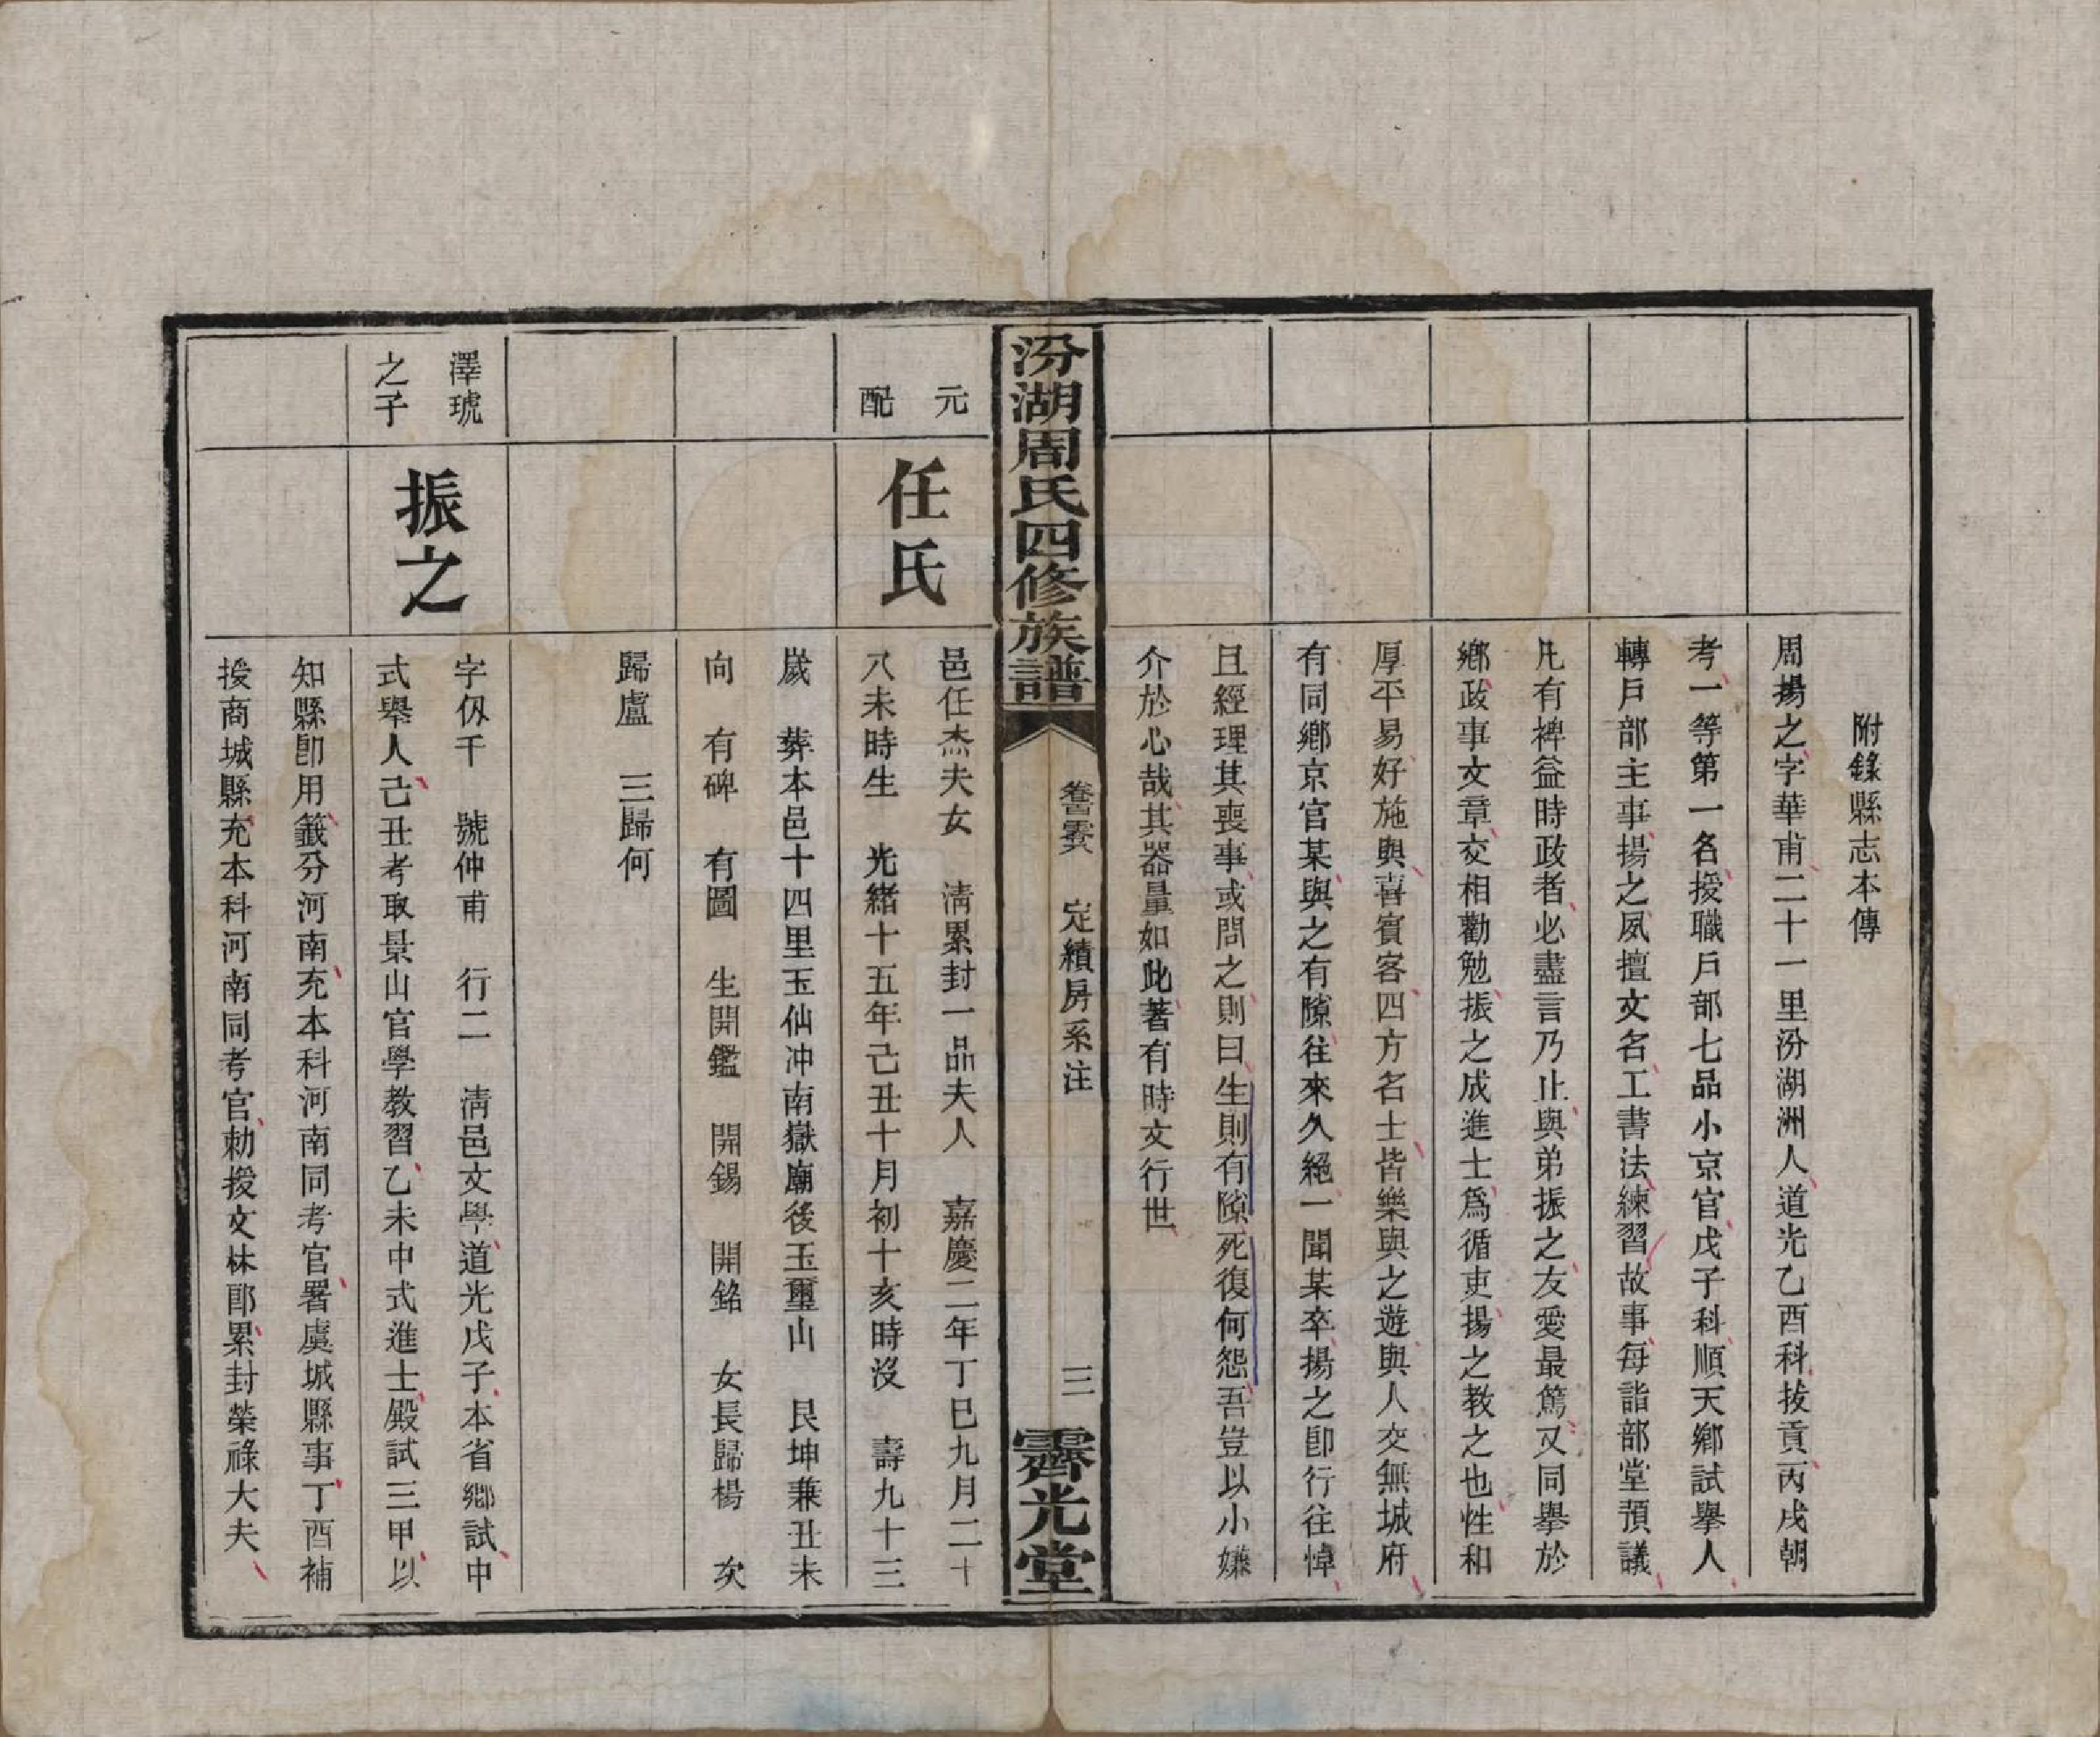 附錄縣志本傳
周揚之字華甫二十一里汾湖洲人道光乙酉科拔貢丙戌朝
考一等第一名授職戶部七品小京官戊子科順天鄉試舉人
轉戶部主事揚之夙擅文名工書法練習故事每詣部堂預議
凡有裨益時政者必盡言乃止與弟振之友愛最篤又同舉於
鄉政事文章交相勸勉振之成進士爲循吏揚之教之也性和
厚平易好施與喜賓客四方名士皆樂與之遊與人交無城府
有同鄉京官某與之有隙往來久絕一聞某卒揚之卽行往悼
且經理其喪事或問之則曰生則有隙死復何怨吾豈以小嫌
介於心哉其器量如此著有時文行世
汾湖周氏四修族譜
定績房系注
三
霽光堂
元配
任氏
邑任杰夫女　清累封一品夫人　嘉慶二年丁巳九月二十
八未時生　光緒十五年己丑十月初十亥時沒　壽九十三
歲　葬本邑十四里玉仙冲南嶽廟後玉璽山　艮坤兼丑未
向　有碑　有圖　生開鑑　開錫　開銘　女長歸楊　次
歸盧　三歸何
澤琥之子
振之
字仭千　號仲甫　行二　清邑文學道光戊子本省鄉試中
式舉人己丑考取景山官學教習乙未中式進士殿試三甲以
知縣卽用籤分河南充本科河南同考官署虞城縣事丁酉補
授商城縣充本科河南同考官勅授文林郎累封榮祿大夫